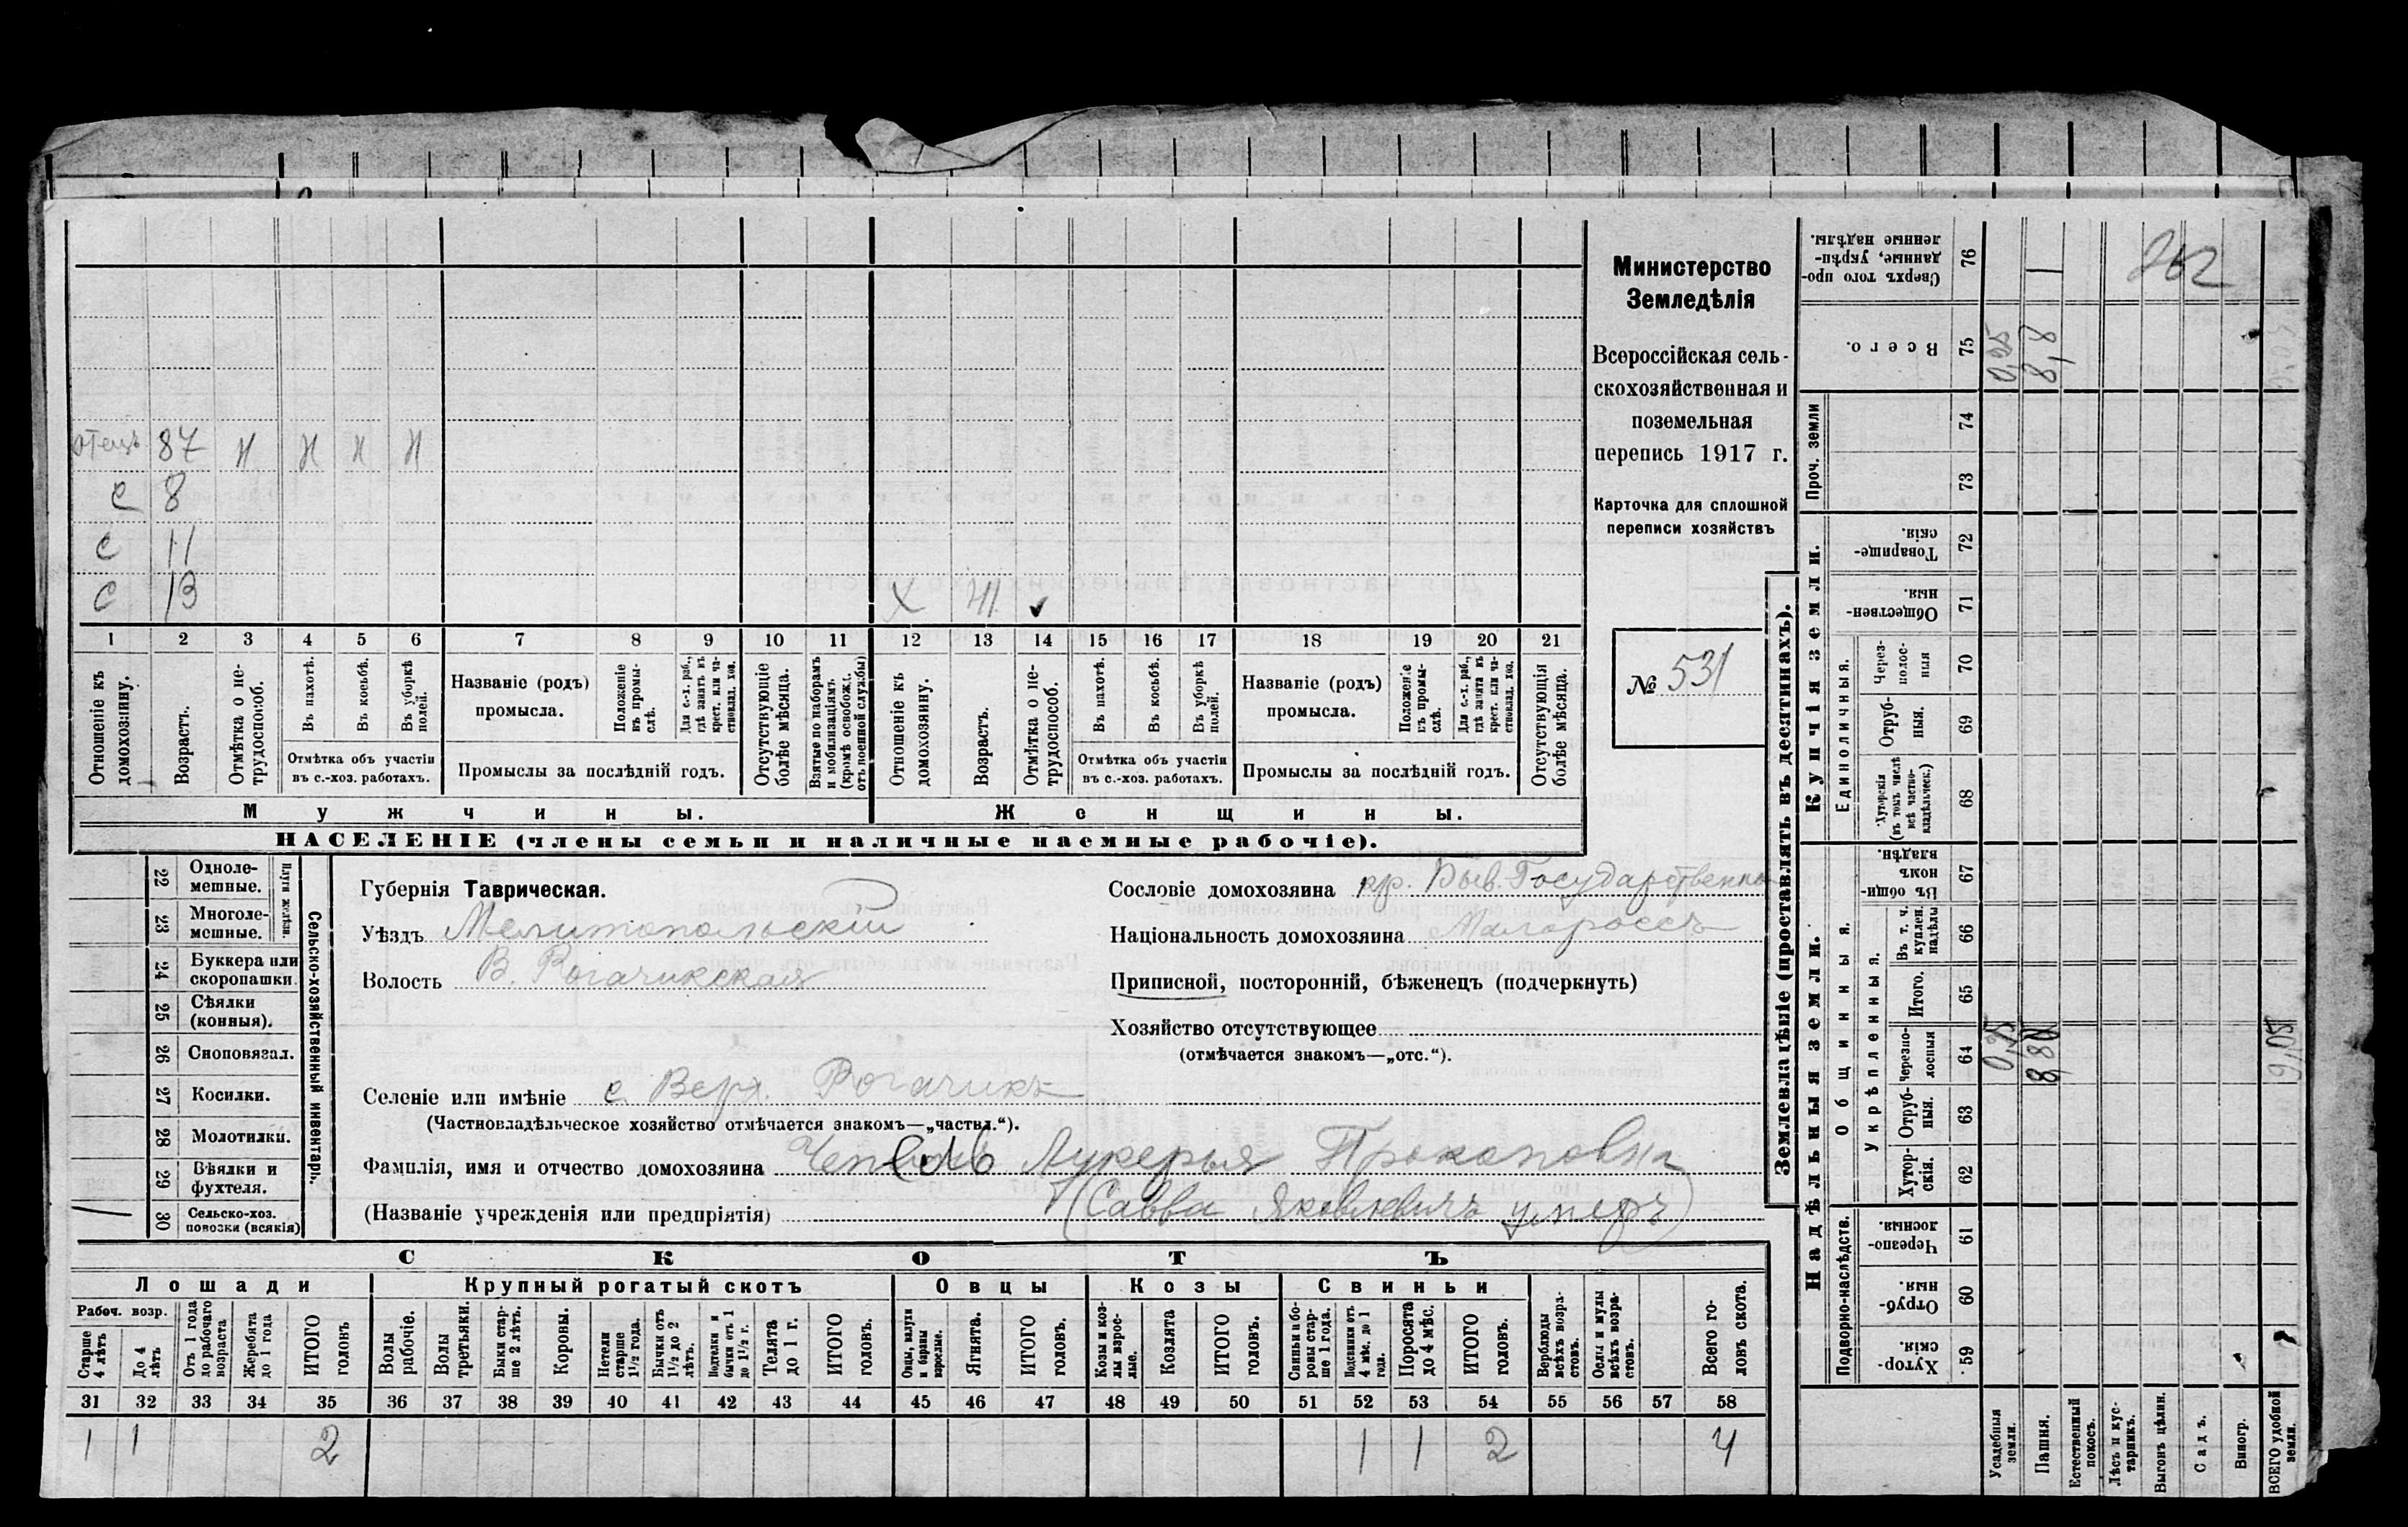 отецъ 87 н н н н
с 8
с 11
с 13 Х 41
1 2 3 4 5 6 7 8 9 10 11 12 13 14 15 16 17 18 19 20 21
Отношеніе къ домохозяину.
Возрастъ.
Отмѣтка о не-
трудоспособ.
Въ пахотѣ.
Въ косьбѣ.
Въ уборкѣ полей.
Отмѣтка объ участіи
въ с.-хоз. работахъ.
Названіе (родъ)
промысла.
Положеніе
въ промы-
слѣ.
Для с.-х. раб.,
гдѣ занятъ въ
крест. или ча-
стновлад. хоз.
Промыслы за послѣдній годъ.
Отсутствующіе
болѣе мѣсяца.
Взятые по наборамъ
и мобилизаціямъ
(кромѣ освобожд.
отъ военной службы)
Отношеніе къ
домохозяину.
Возрастъ.
Отмѣтка о не-
трудоспособ.
Въ пахотѣ.
Въ косьбѣ.
Въ уборкѣ
полей.
Отмѣтка объ участіи
въ с.-хоз. работахъ.
Названіе (родъ)
промысла.
Положеніе
въ промы-
слѣ.
Для с.-х. раб.,
гдѣ занята въ
крест. или ча-
стновлад. хоз.
Промыслы за послѣдній годъ.
Отсутствующія
болѣе мѣсяца.
Мужчины.
Женщины.
НАСЕЛЕНІЕ (члены семьи и наличные наемные рабочіе).
Министерство
Земледѣлія
Всероссійская сель-
скохозяйственная и
поземельная
перепись 1917 г.
Карточка для сплошной
переписи хозяйствъ
№ 531
22 Одноле-
мешные.
23 Многоле-
мешные.
Плуги желѣзн.
24 Буккера или
скоропашки.
25 Сѣялки
(конныя).
26 Сноповязал.
27 Косилки.
28 Молотилки.
29 Вѣялки и
фухтеля.
30 Сельско-хоз.
повозки (всякія)
Сельско-хозяйственный инвентарь.
Губернія Таврическая.
Уѣздъ Мелитопольскій
Волость В. Рогачикская
Селеніе или имѣніе с. Верх. Рогачикъ
(Частновладѣльческое хозяйство отмѣчается знакомъ—„частвл.“).
Фамилія, имя и отчество домохозяина Лукерья Прокоповна
(Названіе учрежденія или предпріятія) (Савва Яковлевичъ умеръ)
Сословіе домохозяина кр. Быв. Государственн
Національность домохозяина Малороссъ
Приписной, посторонній, бѣженецъ (подчеркнуть)
Хозяйство отсутствующее
(отмѣчается знакомъ—„отс.“).
СКОТЪ
Лошади
Крупный рогатый скотъ
Овцы
Козы
Свиньи
Рабоч. возр.
Старше
4 лѣтъ
До 4
лѣтъ
Отъ 1 года
до рабочаго
возраста
Жеребята
до 1 года
ИТОГО
головъ
Волы
рабочіе.
Волы
третьяки.
Быки стар-
ше 2 лѣтъ.
Коровы.
Нетели
старше
1½ года.
Бычки отъ
1½ до 2
лѣтъ.
Подтелки и
бычки отъ 1
до 1½ г.
Телята
до 1 г.
ИТОГО
головъ.
Овцы, валухи
и бараны
взрослые.
Ягнята.
ИТОГО
головъ.
Козы и коз-
лы взрос-
лые.
Козлята
ИТОГО
головъ.
Свиньи и бо-
ровы стар-
ше 1 года.
Подсвинки отъ
4 мѣс. до 1
года.
Поросята
до 4 мѣс.
ИТОГО
головъ.
Верблюды
всѣхъ возра-
стовъ.
Ослы и мулы
всѣхъ возра-
стовъ.
Всего го-
ловъ скота.
31 32 33 34 35 36 37 38 39 40 41 42 43 44 45 46 47 48 49 50 51 52 53 54 55 56 57 58
1 1 2 1 1 2 4
Землевладѣніе (проставлять въ десятинахъ).
Купчія земли.
Надѣльныя земли.
Сверхъ того про-
данные, укрѣп-
ленные надѣлы. 76
262
Всего. 75 0,25 8,8
Проч. земли 74
73
Товарище-
скія. 72
Обществен-
ныя. 71
Единоличныя.
Через-
полос-
ныя 70
Отруб-
ныя. 69
Хуторскія
(въ томъ числѣ
всѣ частно-
владѣльческ.) 68
Общинныя.
Въ общин-
номъ
владѣн. 67
Укрѣпленныя.
Въ т. ч.
куплен.
надѣлы 66
Итого. 65
Черезпо-
лосныя 64 0,25 8,80 9,05
Отруб-
ныя. 63
Хутор-
скія. 62
Подворно-наслѣдств.
Черезпо-
лосныя. 61
Отруб-
ныя. 60
Хутор-
скія. 59
Усадебныя
земли.
Пашня.
Естественный
покосъ.
Лѣсъ и кус-
тарникъ.
Выгонъ цѣлин.
Садъ.
Виногр.
ВСЕГО удобной
земли.